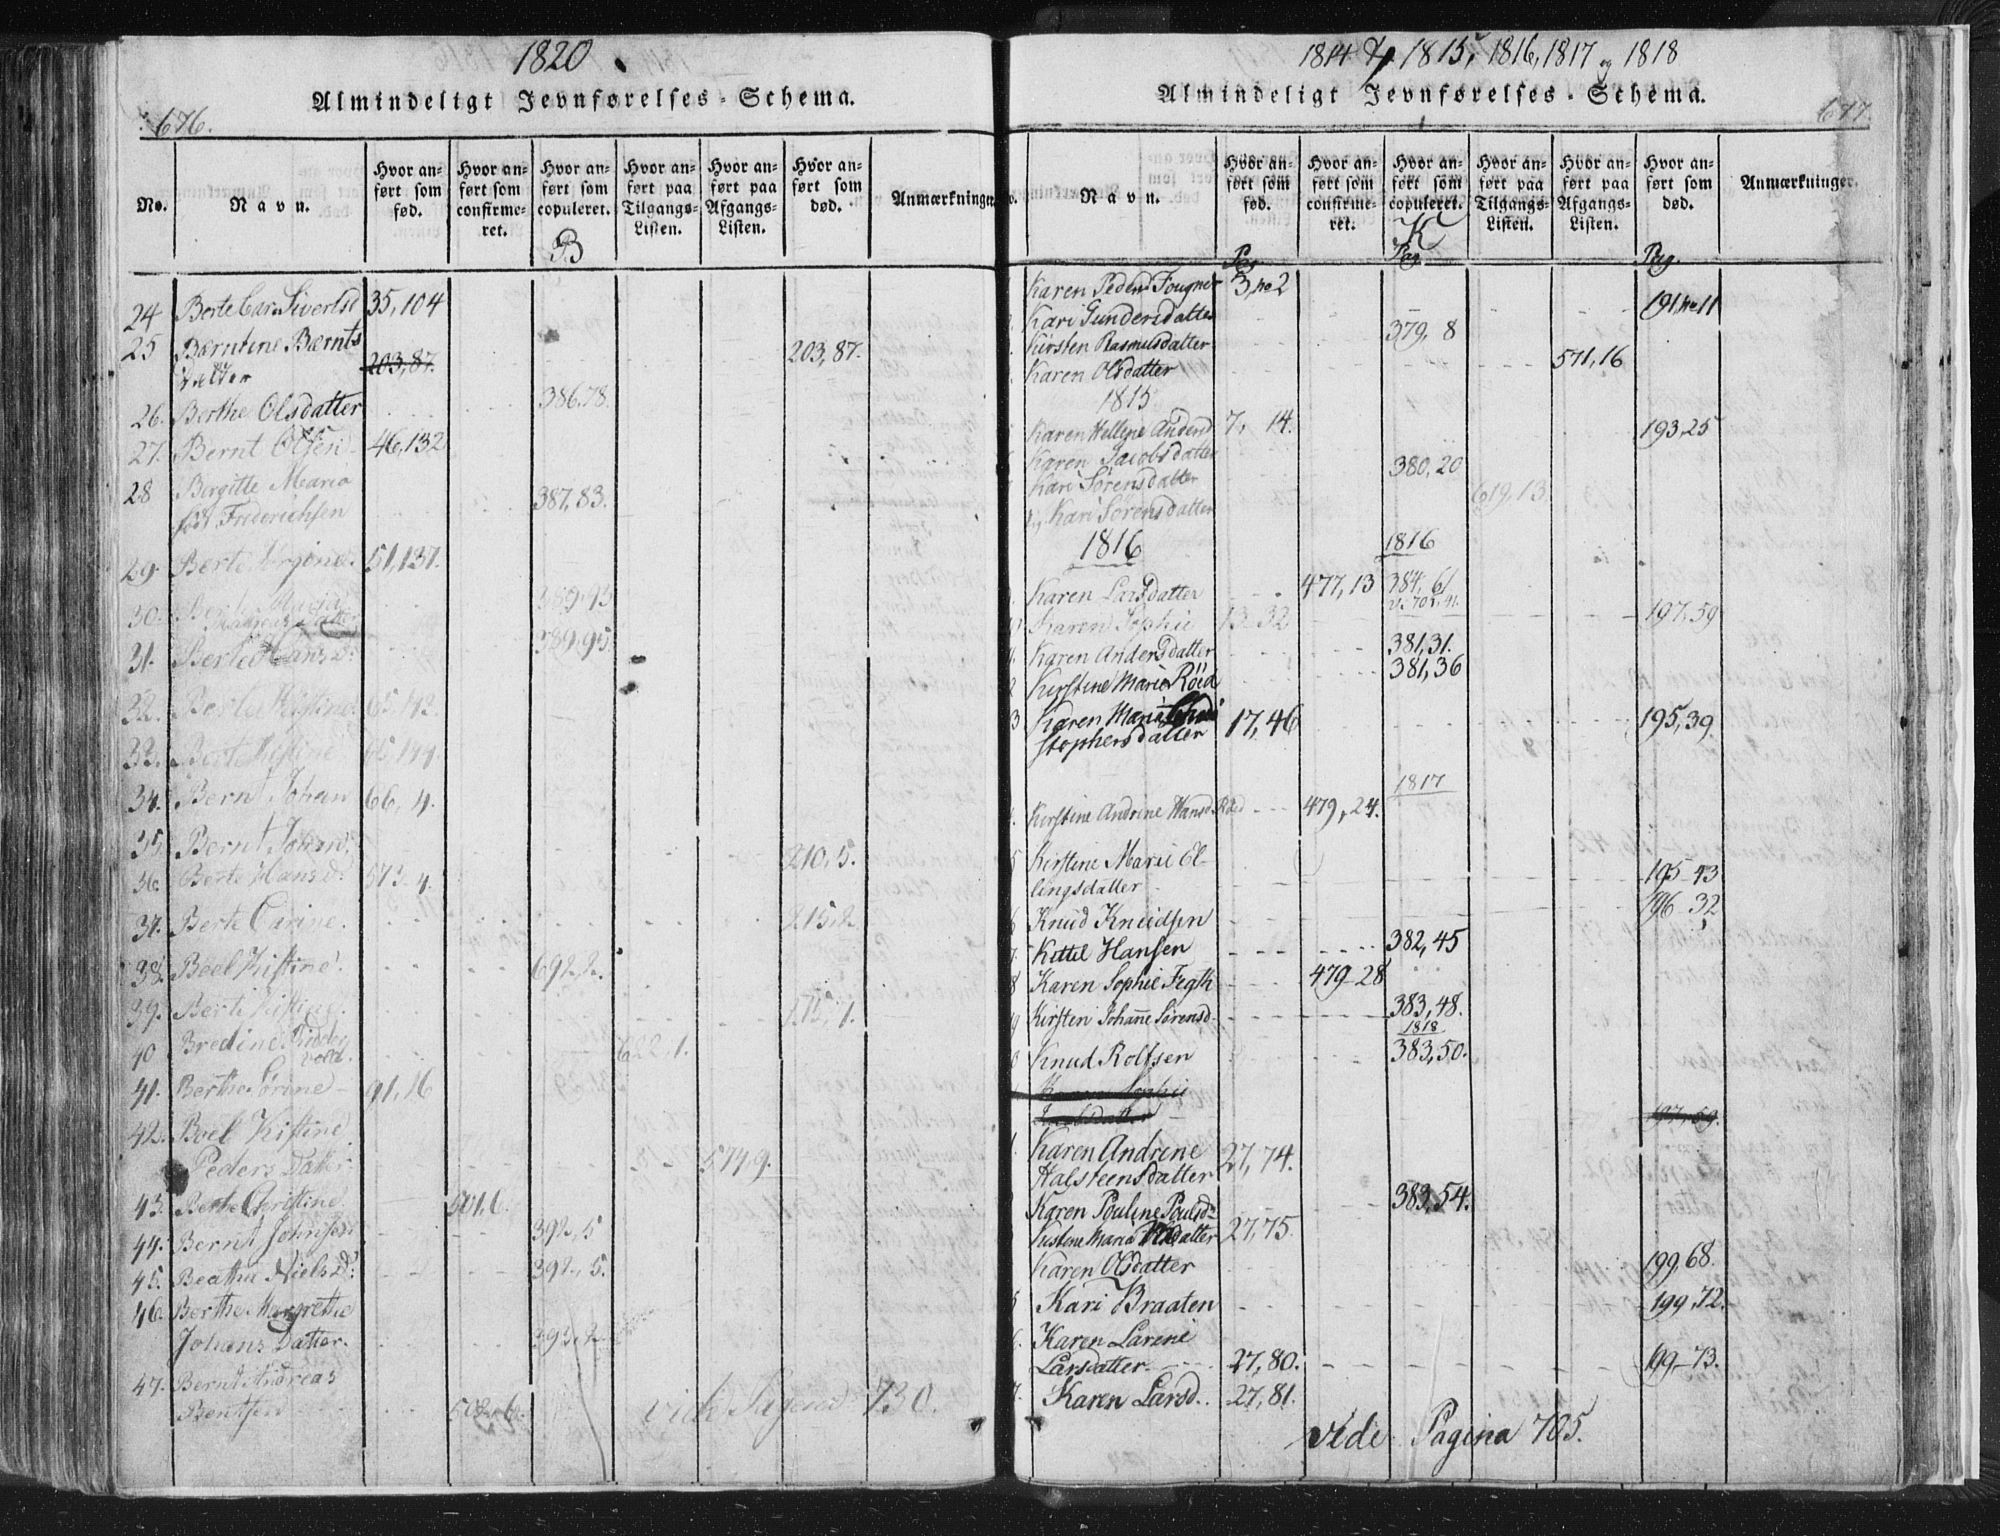 1820
Almindeligt Jevnførelses-Schema.
676.
No.
Navn.
Hvor anført som fød.
Hvor anført som confirmeret.
Hvor anført som copuleret.
Hvor anført paa Tilgangs-Listen.
Hvor anført paa Afgangs-Listen.
Hvor anført som død.
Anmærkninger
B
24 Berte Car. Sivertsd 35,104
25 Bærntine Bærnts
datter 203,87. 203,87.
26. Berthe Olsdatter 386.78.
27. Bernt Olsen 46,132
28 Birgitte Maria
fød Friderichsen 387,83.
29. Berte 51,137.
30. Maria 389.95
31. Berte Hans D: 389,95.
32. Berte Kistine
33. Berte Kistine
34. Bernt Johan 66, 4.
35. Bernt 210,5.
36. Berte Hansd: 573.4.
37. Berte Carine. 215.2.
38. Boel Kistine. 692.2.
39. Berte Kistine.
40 Bredine Ridder
vold. 622,1.
41. Berthe Sørine 91,16
42. Boel Kistine
Peders Datter 574.9.
43. Berthe Christine 501,6.
44. Bernt Johnsen 392,5
45. Beathe Niels D: 392,5.
46. Berthe Margrethe
Johans Datter. 393.2
47. Bernt Andreas
Bentsen 502.6.
vide Pagina 730.
1814 1815, 1816, 1817 og 1818
Almindeligt Jevnførelses-Schema.
677.
No.
Navn.
Hvor anført som fød.
Hvor anført som confirmeret.
Hvor anført som copuleret.
Hvor anført paa Tilgangs-Listen.
Hvor anført paa Afgangs-Listen.
Hvor anført som død.
Anmærkninger.
K
Pag Pag Pag.
Karen Peders Fougner 3, no 2
Kari Gundersdatter 191, no 11
Kirsten Rasmusdatter 379, 8
Karen Olsdatter 571,16
1815
Karen Hellene Andersd 7, 14. 193,25
Karen Jacobsdatter 380,20
Kari Sørensdatter 619,13.
Kari Sørensdatter
1816 1816
Karen Larsdatter 477,13 384,61
Karen Sophie 13-32 197,59
Karen Andersdatter 381,31.
2 Kirstine Marie Röed 381,36
3 Karen Marie Chri
stophersdatter 17,46 195,39.
1817
Kirstine Andrine Hansd Röed 479,24.
5 Kirstine Marie El-
lingsdatter 195-43
6 Knud Knudsen 196-32
7. Kittel Hansen 382,45
8 Karen Sophie Fegth 479-28
9 Kirsten Johanne Sørensd. 383,48.
1818.
0 Knud Rolfsen 383,50.
Karen Sophie
197,59.
1. Karen Andrine
Halsteensdatter 27,74.
Karen Pouline Poulsd: 383,54.
Kistine Marie datter 27,75.
Karen Olsdatter 199,68.
5 Kari Braaten 199,72.
6. Karen Larene
Larsdatter 27,80. 199-73.
7. Karen Larsd. 27,81.
vide Pagina 705.